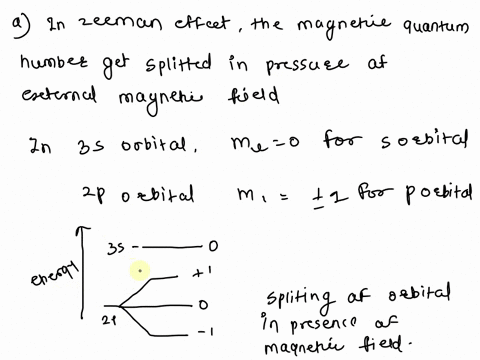 a) In zeeman effect, the magnetic quantum
number get splitted in pressure of
external magnetic field
In 3s orbital, me=0 for s orbital
2p orbital m1 = ±1 for p orbital
energy
3s 0
+1
0
2p
-1
spliting of orbital
in presence of
magnetic field.